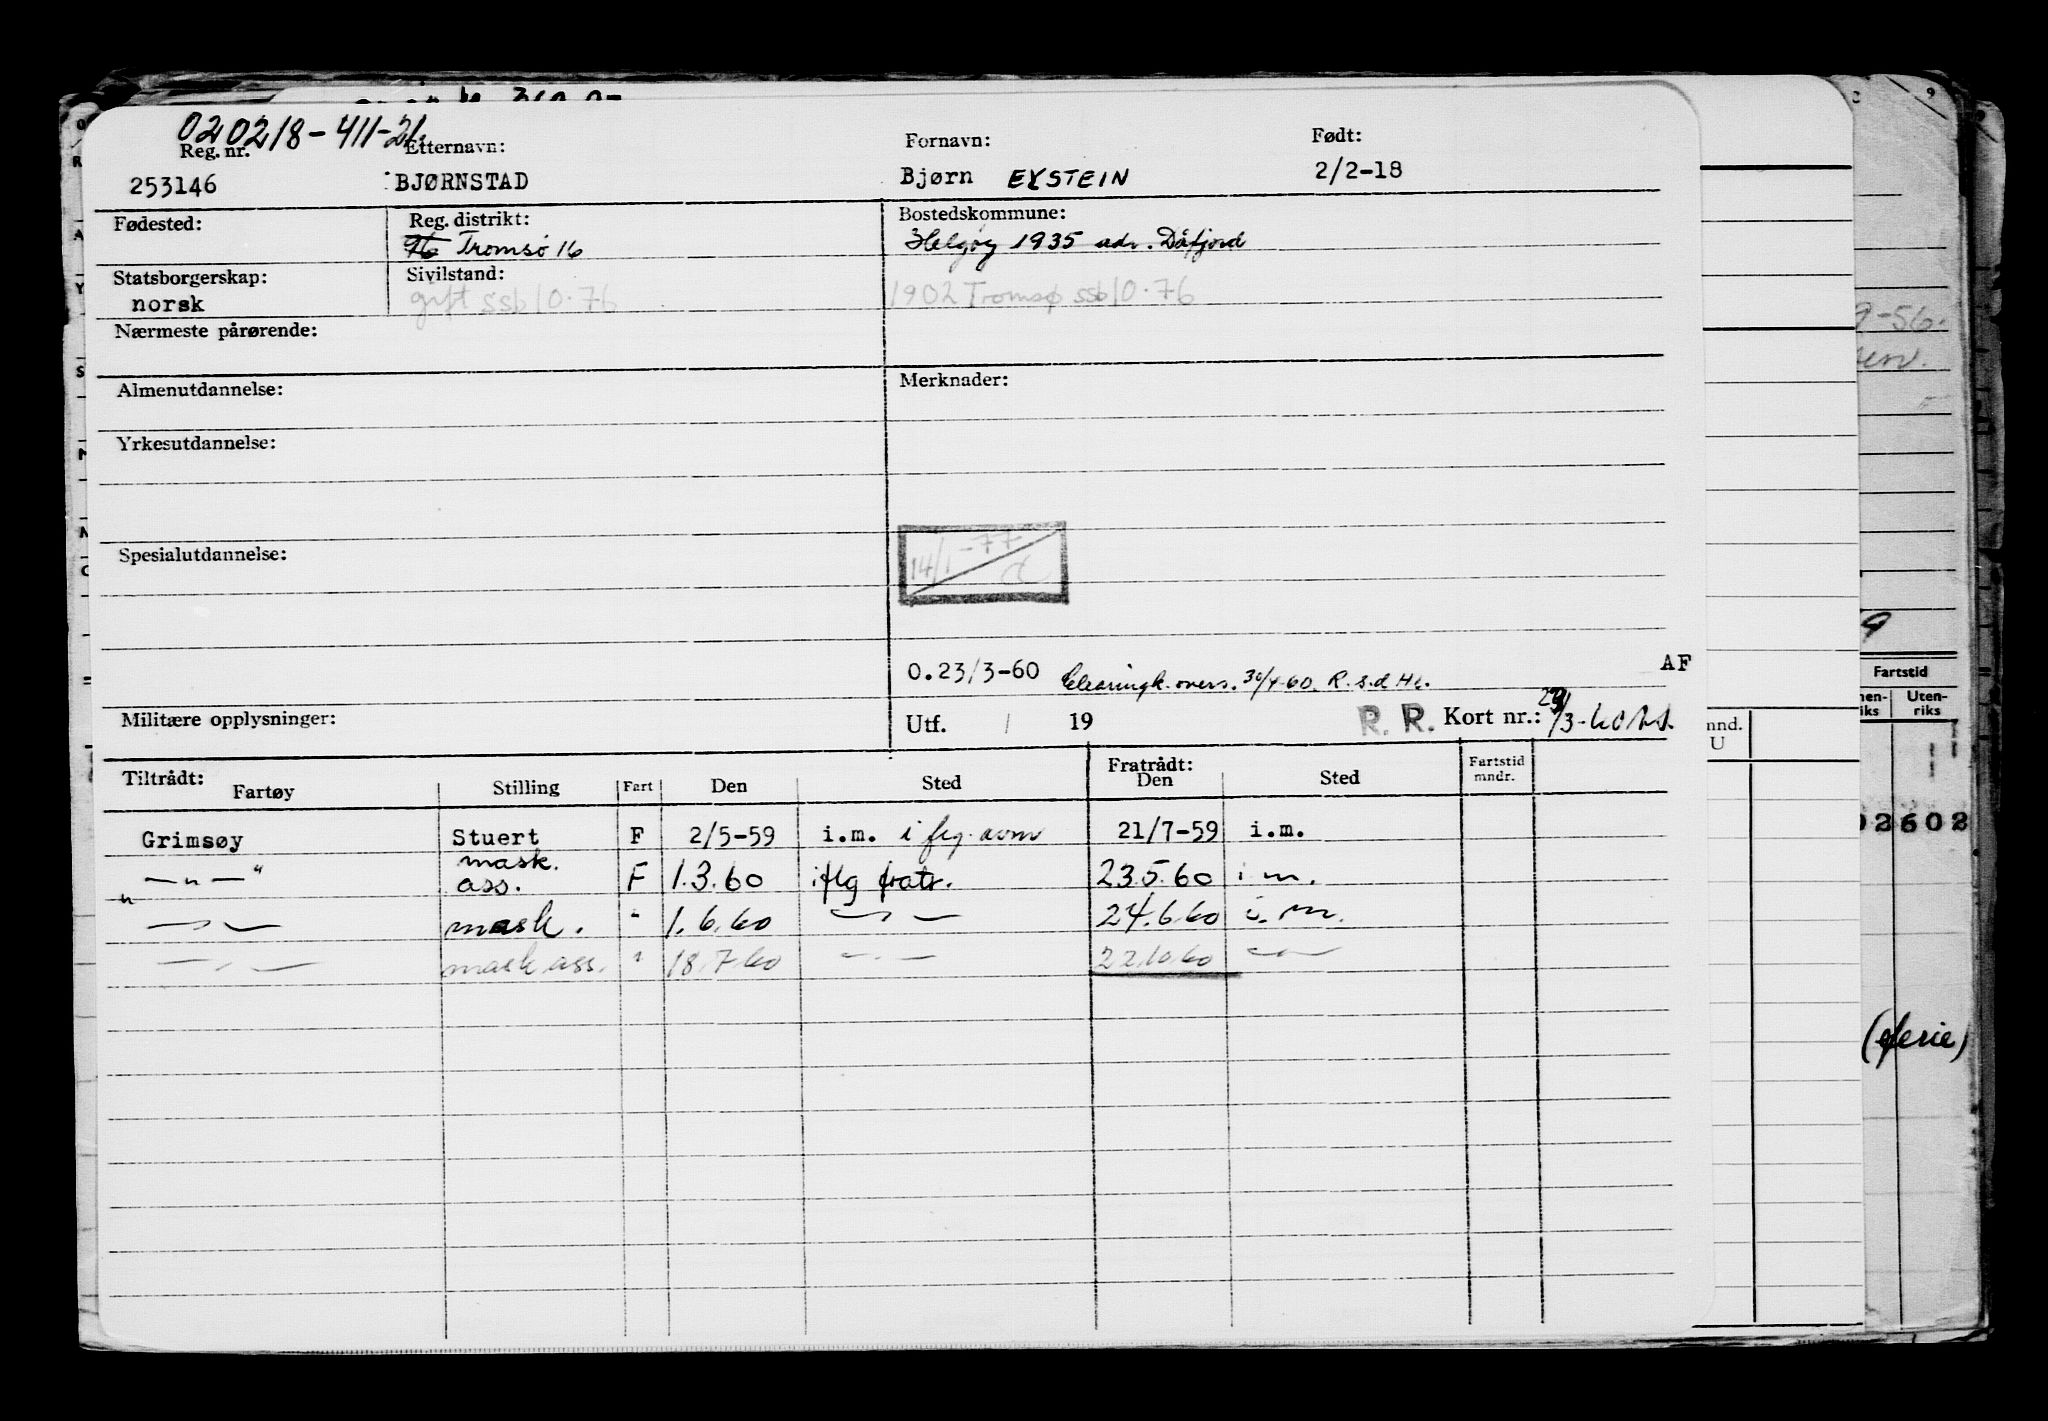 020218-411-21.
Reg. nr. Etternavn: Fornavn: Født:
253146 BJØRNSTAD Bjørn EYSTEIN 2/2-18
Fødested: Reg. distrikt: Bostedskommune:
96 Tromsø 16 Helgøy 1935 adr. Dåfjord
Statsborgerskap: Sivilstand:
norsk gift ssb 10.76 1902 Tromsø ssb 10.76
Nærmeste pårørende:
Almenutdannelse: Merknader:
Yrkesutdannelse:
14/1-77
Spesialutdannelse:
0.23/3-60 Clearingk. overs. 30/4-60. R.s.d. AF
Militære opplysninger: Utf. / 19 R. R. Kort nr.:
Tiltrådt: Fratrådt: Fartstid mndr.
Fartøy Stilling Fart Den Sted Den Sted
Grimsøy Stuert F 2/5-59 i.m. i flg. 21/7-59 i.m.
— " — " mask. ass. F 1.3.60 iflg fratr. 23.5.60 i m.
— " — mask. " 1.6.60 — " — 24.6.60 i. m.
— " — mask ass. " 18.7.60 — " — 22.10.60 — " —
9-56.
9
Fartstid
Uten-
riks
mnd.
U
02602
(ferie)